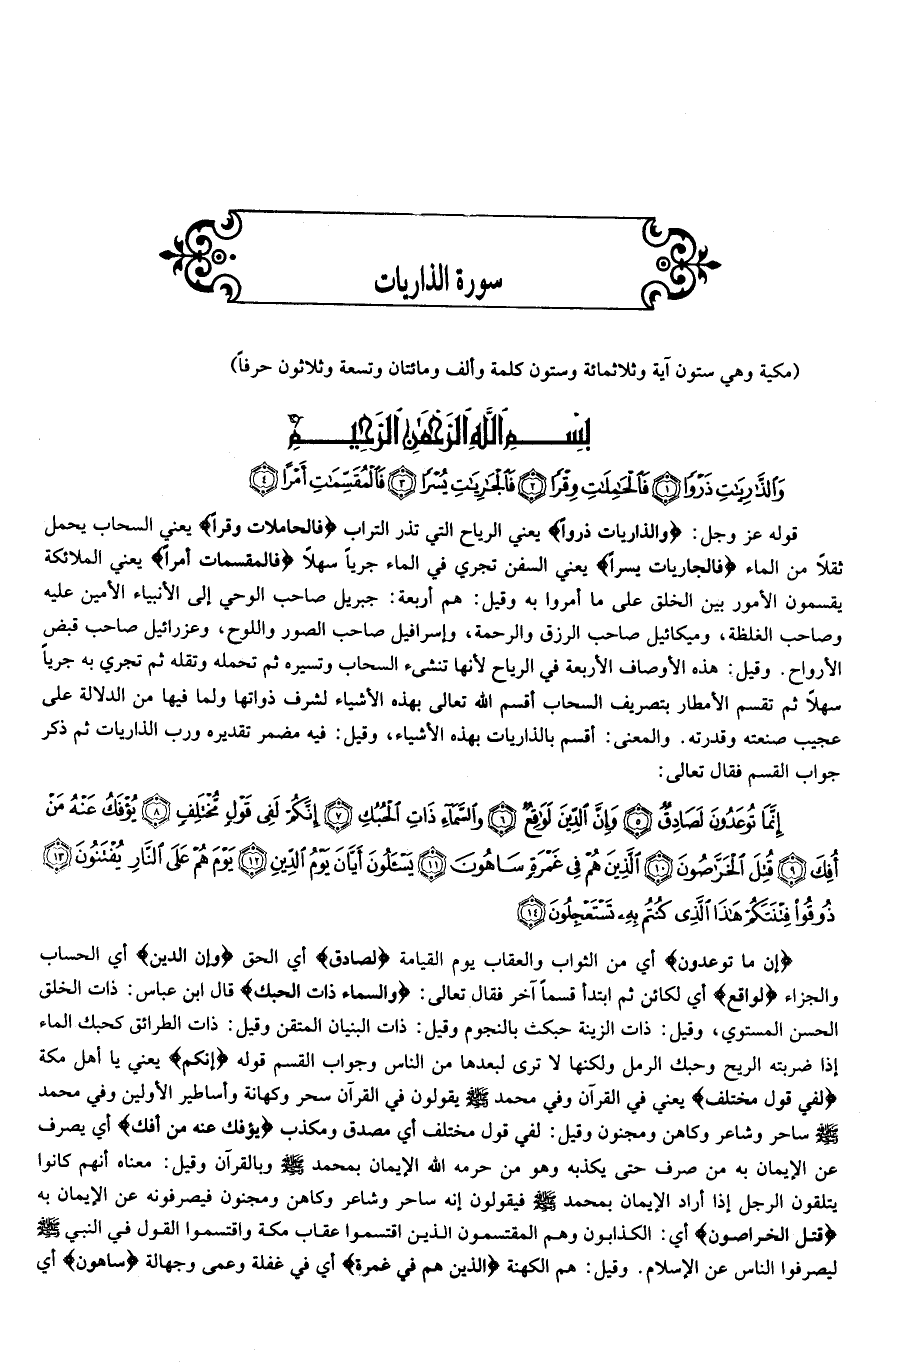 سورة الذاريات
(مكية وهي ستون آية وثلاثمائة وستون كلمة وألف ومائتان وتسعة وثلاثون حرفاً)
بِسْمِ اللَّهِ الرَّحْمَٰنِ الرَّحِيمِ
وَالذَّارِيَاتِ ذَرْوًا ١ فَالْحَامِلَاتِ وِقْرًا ٢ فَالْجَارِيَاتِ يُسْرًا ٣ فَالْمُقَسِّمَاتِ أَمْرًا ٤
قوله عز وجل: ﴿والذاريات ذروا﴾ يعني الرياح التي تذر التراب ﴿فالحاملات وقراً﴾ يعني السحاب يحمل
ثقلاً من الماء ﴿فالجاريات يسراً﴾ يعني السفن تجري في الماء جرياً سهلاً ﴿فالمقسمات أمراً﴾ يعني الملائكة
يقسمون الأمور بين الخلق على ما أمروا به وقيل: هم أربعة: جبريل صاحب الوحي إلى الأنبياء الأمين عليه
وصاحب الغلظة، وميكائيل صاحب الرزق والرحمة، وإسرافيل صاحب الصور واللوح، وعزرائيل صاحب قبض
الأرواح. وقيل: هذه الأوصاف الأربعة في الرياح لأنها تنشىء السحاب وتسيره ثم تحمله وتقله ثم تجري به جرياً
سهلاً ثم تقسم الأمطار بتصريف السحاب أقسم الله تعالى بهذه الأشياء لشرف ذواتها ولما فيها من الدلالة على
عجيب صنعته وقدرته. والمعنى: أقسم بالذاريات بهذه الأشياء، وقيل: فيه مضمر تقديره ورب الذاريات ثم ذكر
جواب القسم فقال تعالى:
إِنَّمَا تُوعَدُونَ لَصَادِقٌ ٥ وَإِنَّ الدِّينَ لَوَاقِعٌ ٦ وَالسَّمَاءِ ذَاتِ الْحُبُكِ ٧ إِنَّكُمْ لَفِي قَوْلٍ مُّخْتَلِفٍ ٨ يُؤْفَكُ عَنْهُ مَنْ
أُفِكَ ٩ قُتِلَ الْخَرَّاصُونَ ١٠ الَّذِينَ هُمْ فِي غَمْرَةٍ سَاهُونَ ١١ يَسْـَٔلُونَ أَيَّانَ يَوْمُ الدِّينِ ١٢ يَوْمَ هُمْ عَلَى النَّارِ يُفْتَنُونَ ١٣
ذُوقُوا فِتْنَتَكُمْ هَٰذَا الَّذِي كُنتُم بِهِ تَسْتَعْجِلُونَ ١٤
﴿إن ما توعدون﴾ أي من الثواب والعقاب يوم القيامة ﴿لصادق﴾ أي الحق ﴿وإن الدين﴾ أي الحساب
والجزاء ﴿لواقع﴾ أي لكائن ثم ابتدأ قسماً آخر فقال تعالى: ﴿والسماء ذات الحبك﴾ قال ابن عباس: ذات الخلق
الحسن المستوي، وقيل: ذات الزينة حبكت بالنجوم وقيل: ذات البنيان المتقن وقيل: ذات الطرائق كحبك الماء
إذا ضربته الريح وحبك الرمل ولكنها لا ترى لبعدها من الناس وجواب القسم قوله ﴿إنكم﴾ يعني يا أهل مكة
﴿لفي قول مختلف﴾ يعني في القرآن وفي محمد ﷺ يقولون في القرآن سحر وكهانة وأساطير الأولين وفي محمد
ﷺ ساحر وشاعر وكاهن ومجنون وقيل: لفي قول مختلف أي مصدق ومكذب ﴿يؤفك عنه من أفك﴾ أي يصرف
عن الإيمان به من صرف حتى يكذبه وهو من حرمه الله الإيمان بمحمد ﷺ وبالقرآن وقيل: معناه أنهم كانوا
يتلقون الرجل إذا أراد الإيمان بمحمد ﷺ فيقولون إنه ساحر وشاعر وكاهن ومجنون فيصرفونه عن الإيمان به
﴿قتل الخراصون﴾ أي: الكذابون وهم المقتسمون الذين اقتسموا عقاب مكة واقتسموا القول في النبي ﷺ
ليصرفوا الناس عن الإسلام. وقيل: هم الكهنة ﴿الذين هم في غمرة﴾ أي في غفلة وعمى وجهالة ﴿ساهون﴾ أي